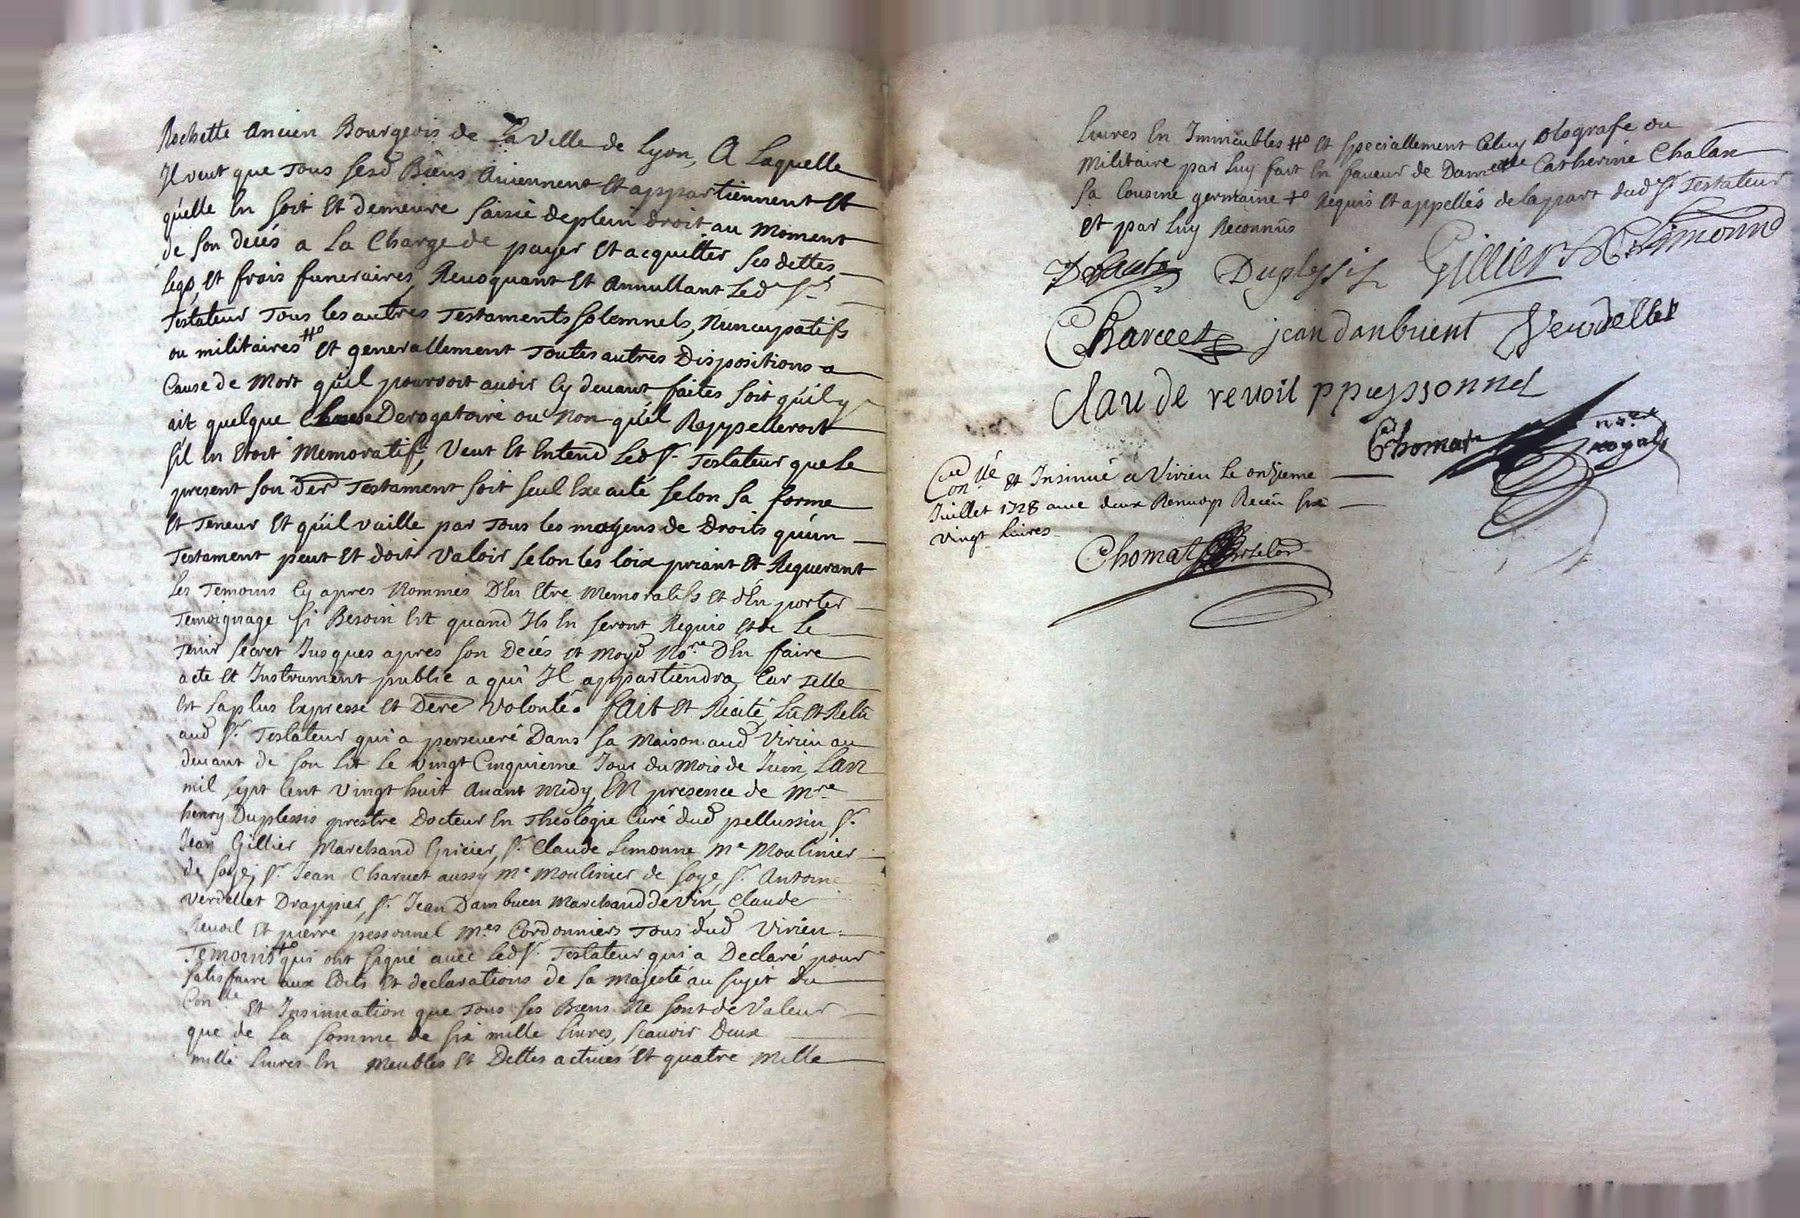 Rochette Ancien Bourgeois de La Ville de Lyon, A Laquelle
Il veut que Tous sesd Biens aviennent et appartiennent et
quelle En soit Et demeure saisie de plein Droit au Moment
de son decés a La Charge de payer Et acquitter ses dettes
legs, et frais funeraires, Revoquant Et Annullant Led Sr
Testateur Tous les autres Testaments solemnels, Nuncupatifs
ou militaires #o Et generallement Toutes autres Dispositions a
Cause de Mort quil pourroit avoir Cy devant, faites soit quil y
ait quelque Clause Derogatoire ou Non quil Rappelleroit
Sil En Etoit Memoratif, Veut Et Entend Led Sr Testateur que Le
present son der Testament soit seul Executé selon sa forme
Et Teneur Et quil vaille par Tous les moyens de Droits quún
Testament peut Et doit valoir selon les loix priant Et Requerant
Les Temoins Cy apres Nommés D'En Etre Memoratifs Et d'En porter
Temoignage Si Besoin Est quand Ils En seront Requis Et de Le
Tenir secret Jusques apres son Decés Et Moyd Nore D'En faire
acte Et Instrument public a qui Il appartiendra, Car Telle
Est sa plus Expresse Et Dere Volonté. fait Et Recité, Lû Et Relû
aud Sr Testateur qui a perseveré Dans sa Maison aud Virieu au
devant de son Lit Le Vingt Cinquieme Jour du Mois de Juin, L'an
mil sept Cent Vingt huit Avant Midy, En presence de Mre
henry Duplessis prestre Docteur En Theologie Curé dud pellussin, Sr
Jean Gillier Marchand Epicier, Sr Claude Limonne Me Moulinier
de soye, Sr Jean Charvet aussy Me Moulinier de soye Sr Antoine
Verdellet Drappier, Sr Jean Dambuen Marchand de Vin, Claude
Revoil Et pierre pessonnel Mes Cordonniers Tous dud Virieu
Temoins #o qui ont signé avec Led Sr Testateur qui a Declaré pour
satisfaire aux Edits Et declarations de sa Majesté au sujet du
Conlle Et Insinuation que Tous ses Biens Ne sont de Valeur
que de La somme de six mille Livres, sçavoir Deux
mille Livres En Meubles Et Dettes actives Et quatre Mille
Livres En Immeubles #o Et speciallement Celuy Olografe ou
Militaire par Luy fait En faveur de Damelle Catherine Chalan
sa Cousine germaine +o Requis Et appellés de la part dud Sr Testateur
Et par Luy Reconnûs
Duplessis Gillier C Limonne
Charvet jean danbuent Verdellet
Claude revoil p peyssonnel
Chomat nre royal
Conllé Et Insinué a Virieu Le onzieme
Juillet 1728 avec deux Renvoys Receu six
vingt Livres
Chomat